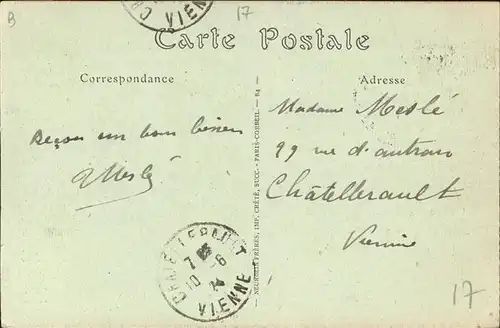 B
17
VIENNE
Carte Postale
Correspondance
Adresse
un bon
Meslé
Madame Meslé
99 rue d'
Châtellerault
Vienne
NEURDEIN FRÈRES, IMP. CRÉTÉ, SUCC. — PARIS-CORBEIL. — 84 —
CHATELLERAULT
7
10 - 6
VIENNE
17